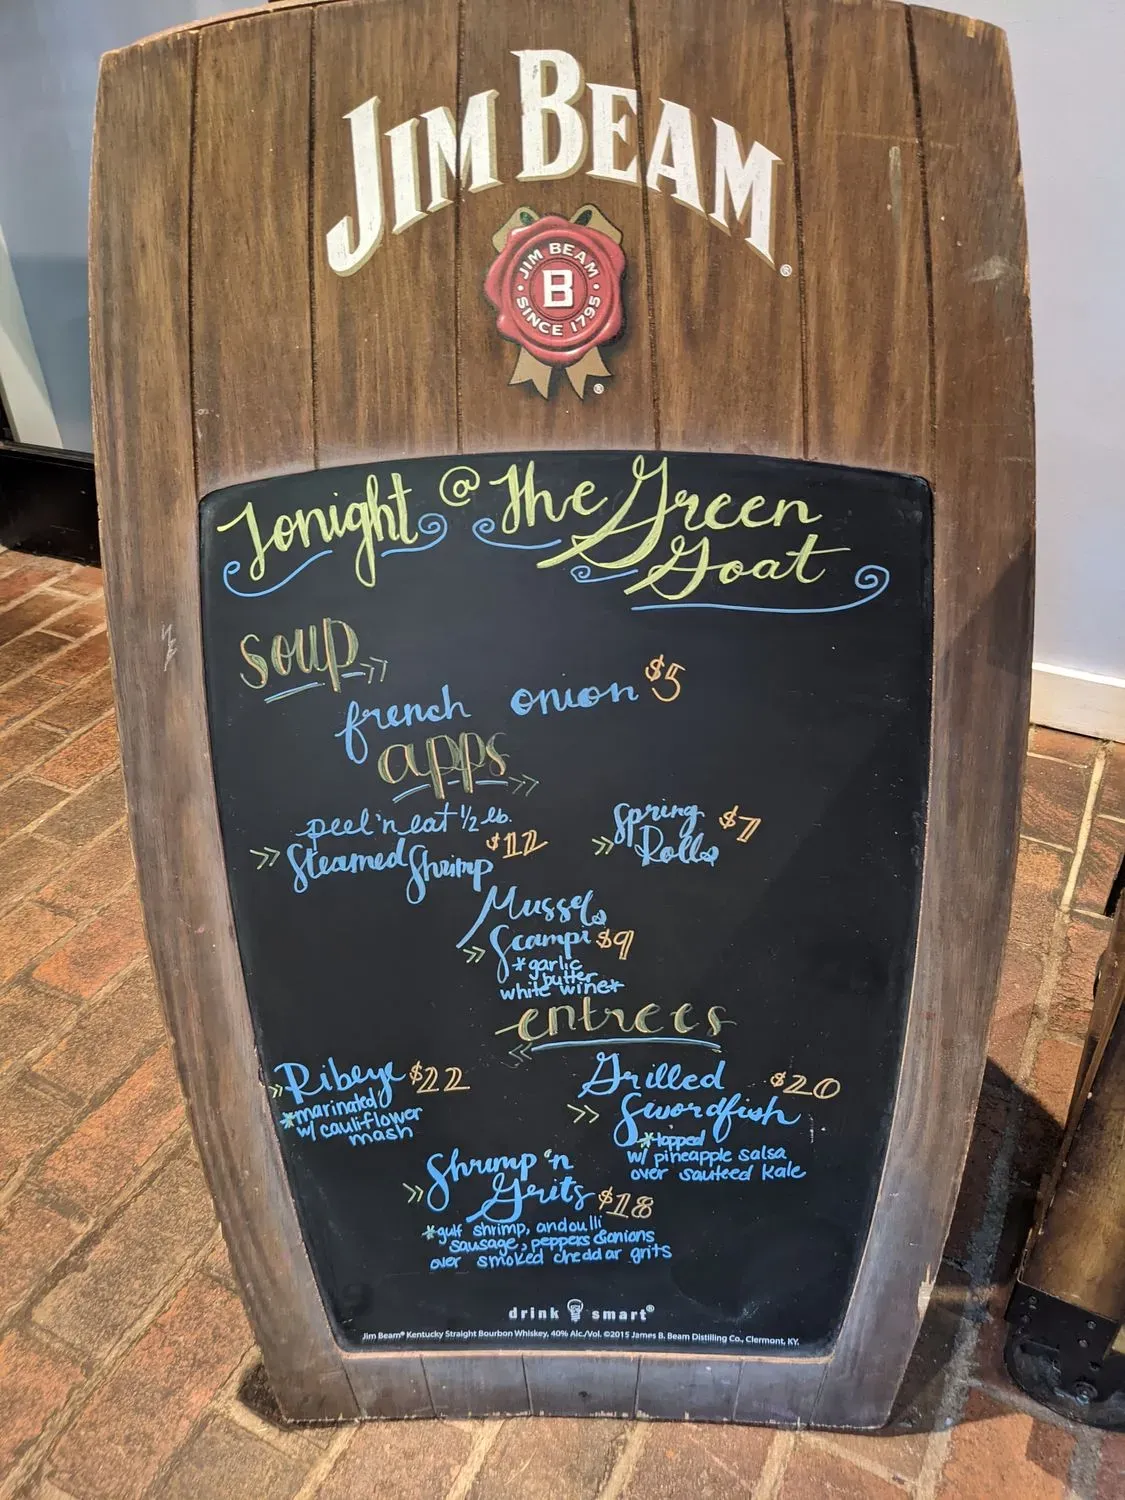 JIM BEAM
®
JIM BEAM
B
SINCE 1795
®
Tonight @ The Green
Goat
soup
french onion $5
apps
peel 'n eat 1/2 lb.
Steamed Shrimp $12
Spring $7
Rolls
Mussels
Scampi $9
*garlic
butter
white wine*
entrees
Ribeye $22
*marinated
w/ cauliflower
mash
Grilled $20
Swordfish
*topped
w/ pineapple salsa
over sauteed kale
Shrimp 'n
Grits $18
*gulf shrimp, andoulli
sausage, peppers & onions
over smoked cheddar grits
drink smart®
Jim Beam® Kentucky Straight Bourbon Whiskey, 40% Alc./Vol. ©2015 James B. Beam Distilling Co., Clermont, KY.